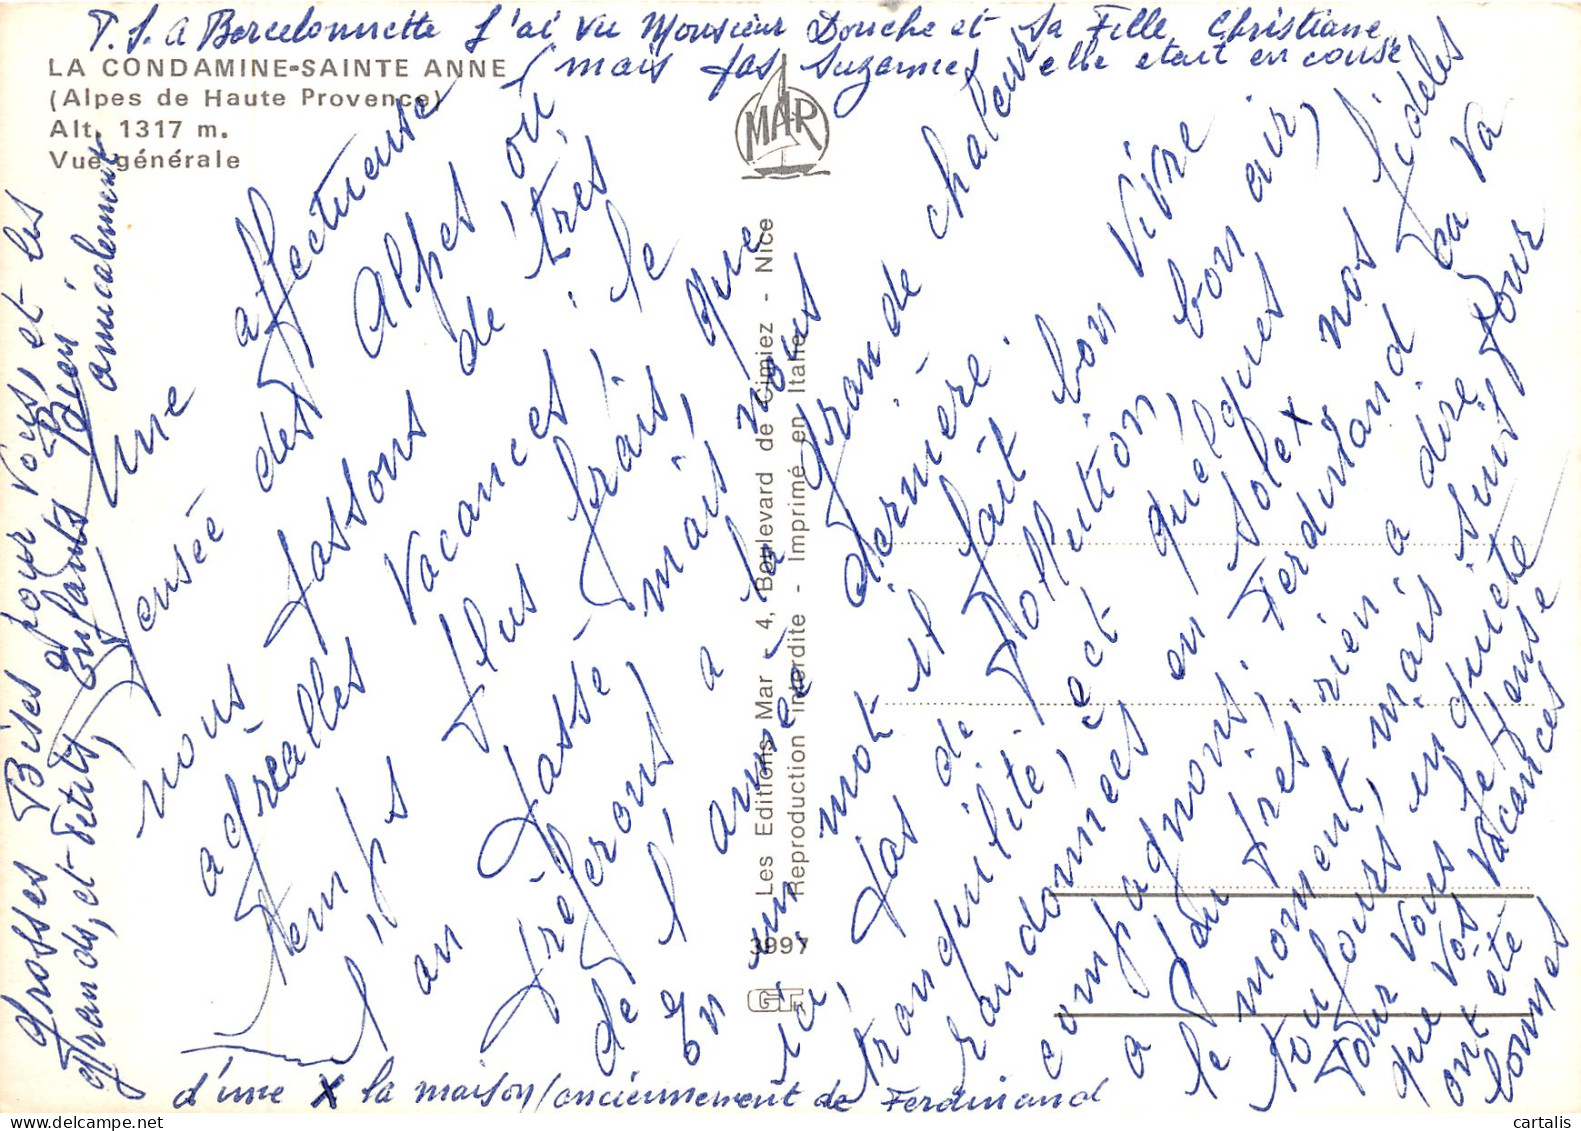 P.S. A Barcelonnette J'ai vu Monsieur Douche et sa Fille Christiane
(mais pas Suzanne) elle etait en course
LA CONDAMINE-SAINTE ANNE
(Alpes de Haute Provence)
Alt. 1317 m.
Vue générale
MAR
Une affectueuse
pensée des Alpes où
nous passons de très
agréalles vacances, le
temps plus frais, que
l'an passé, mais nous
préferons à la grande chaleur
de l'année dernière.
En un mot il fait bon vivre
ici, pas de pollution, bon air,
tranquilité, ect quelques
randonnées en solex nos fidèles
compagnons; Ferdinand ça va
à peu près, rien a dire pour
le moment, mais suis
toujours en quiète
Pour vous je pense
que vos vacances
ont été
bonnes
d'une x la maison (anciennement de Ferdinand
Grosses Bises pour vous, et les
Grands, et Petits enfants Bien
amicalement
Les Editions Mar - 4, Boulevard de Cimiez - Nice
Reproduction interdite - Imprimé en Italie
3997
cartalis.com